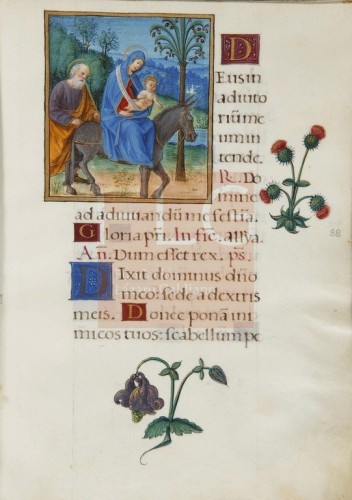 Deus in
adiuto
riũ me
um in
tende.
R. Do
mine
ad adiuvandũ me festia
Gloria pr̃i. In fic̃. allya.
Añ. Dum esset rex. ps.
Dixit dominus dño
meo: sede a dextris
meis. Donec ponã ini
micos tuos: scabellum pe
88